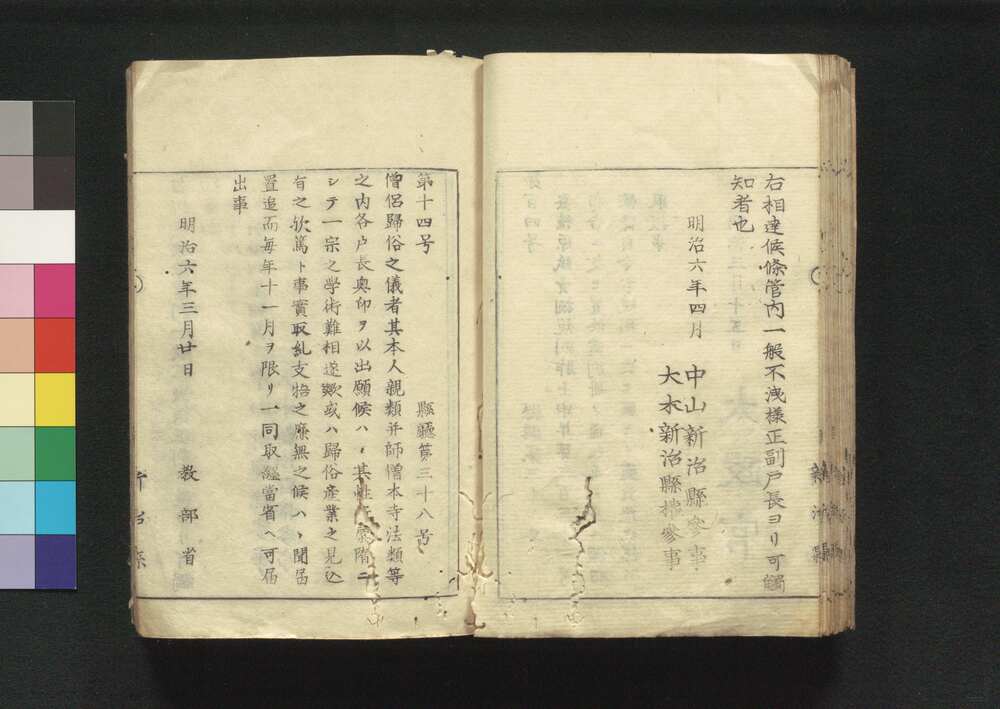 右相達候條管内一般不洩様正副戸長ヨリ可觸
知者也
明治六年四月
中山新治縣參事
大木新治縣權參事
第十四号
縣廳第三十八号
僧侶歸俗之儀者其本人親類并師僧本寺法類等
之内各戸長奥印ヲ以出願候ハヽ其性 階ニ
シテ一宗之學術難相遂歟或ハ歸俗産業之見込
有之欤篤ト事實取糺支牾之廉無之候ハヽ聞届
置追而毎年十一月ヲ限リ一同取纏當省ヘ可届
出事
明治六年三月廿日
教部省